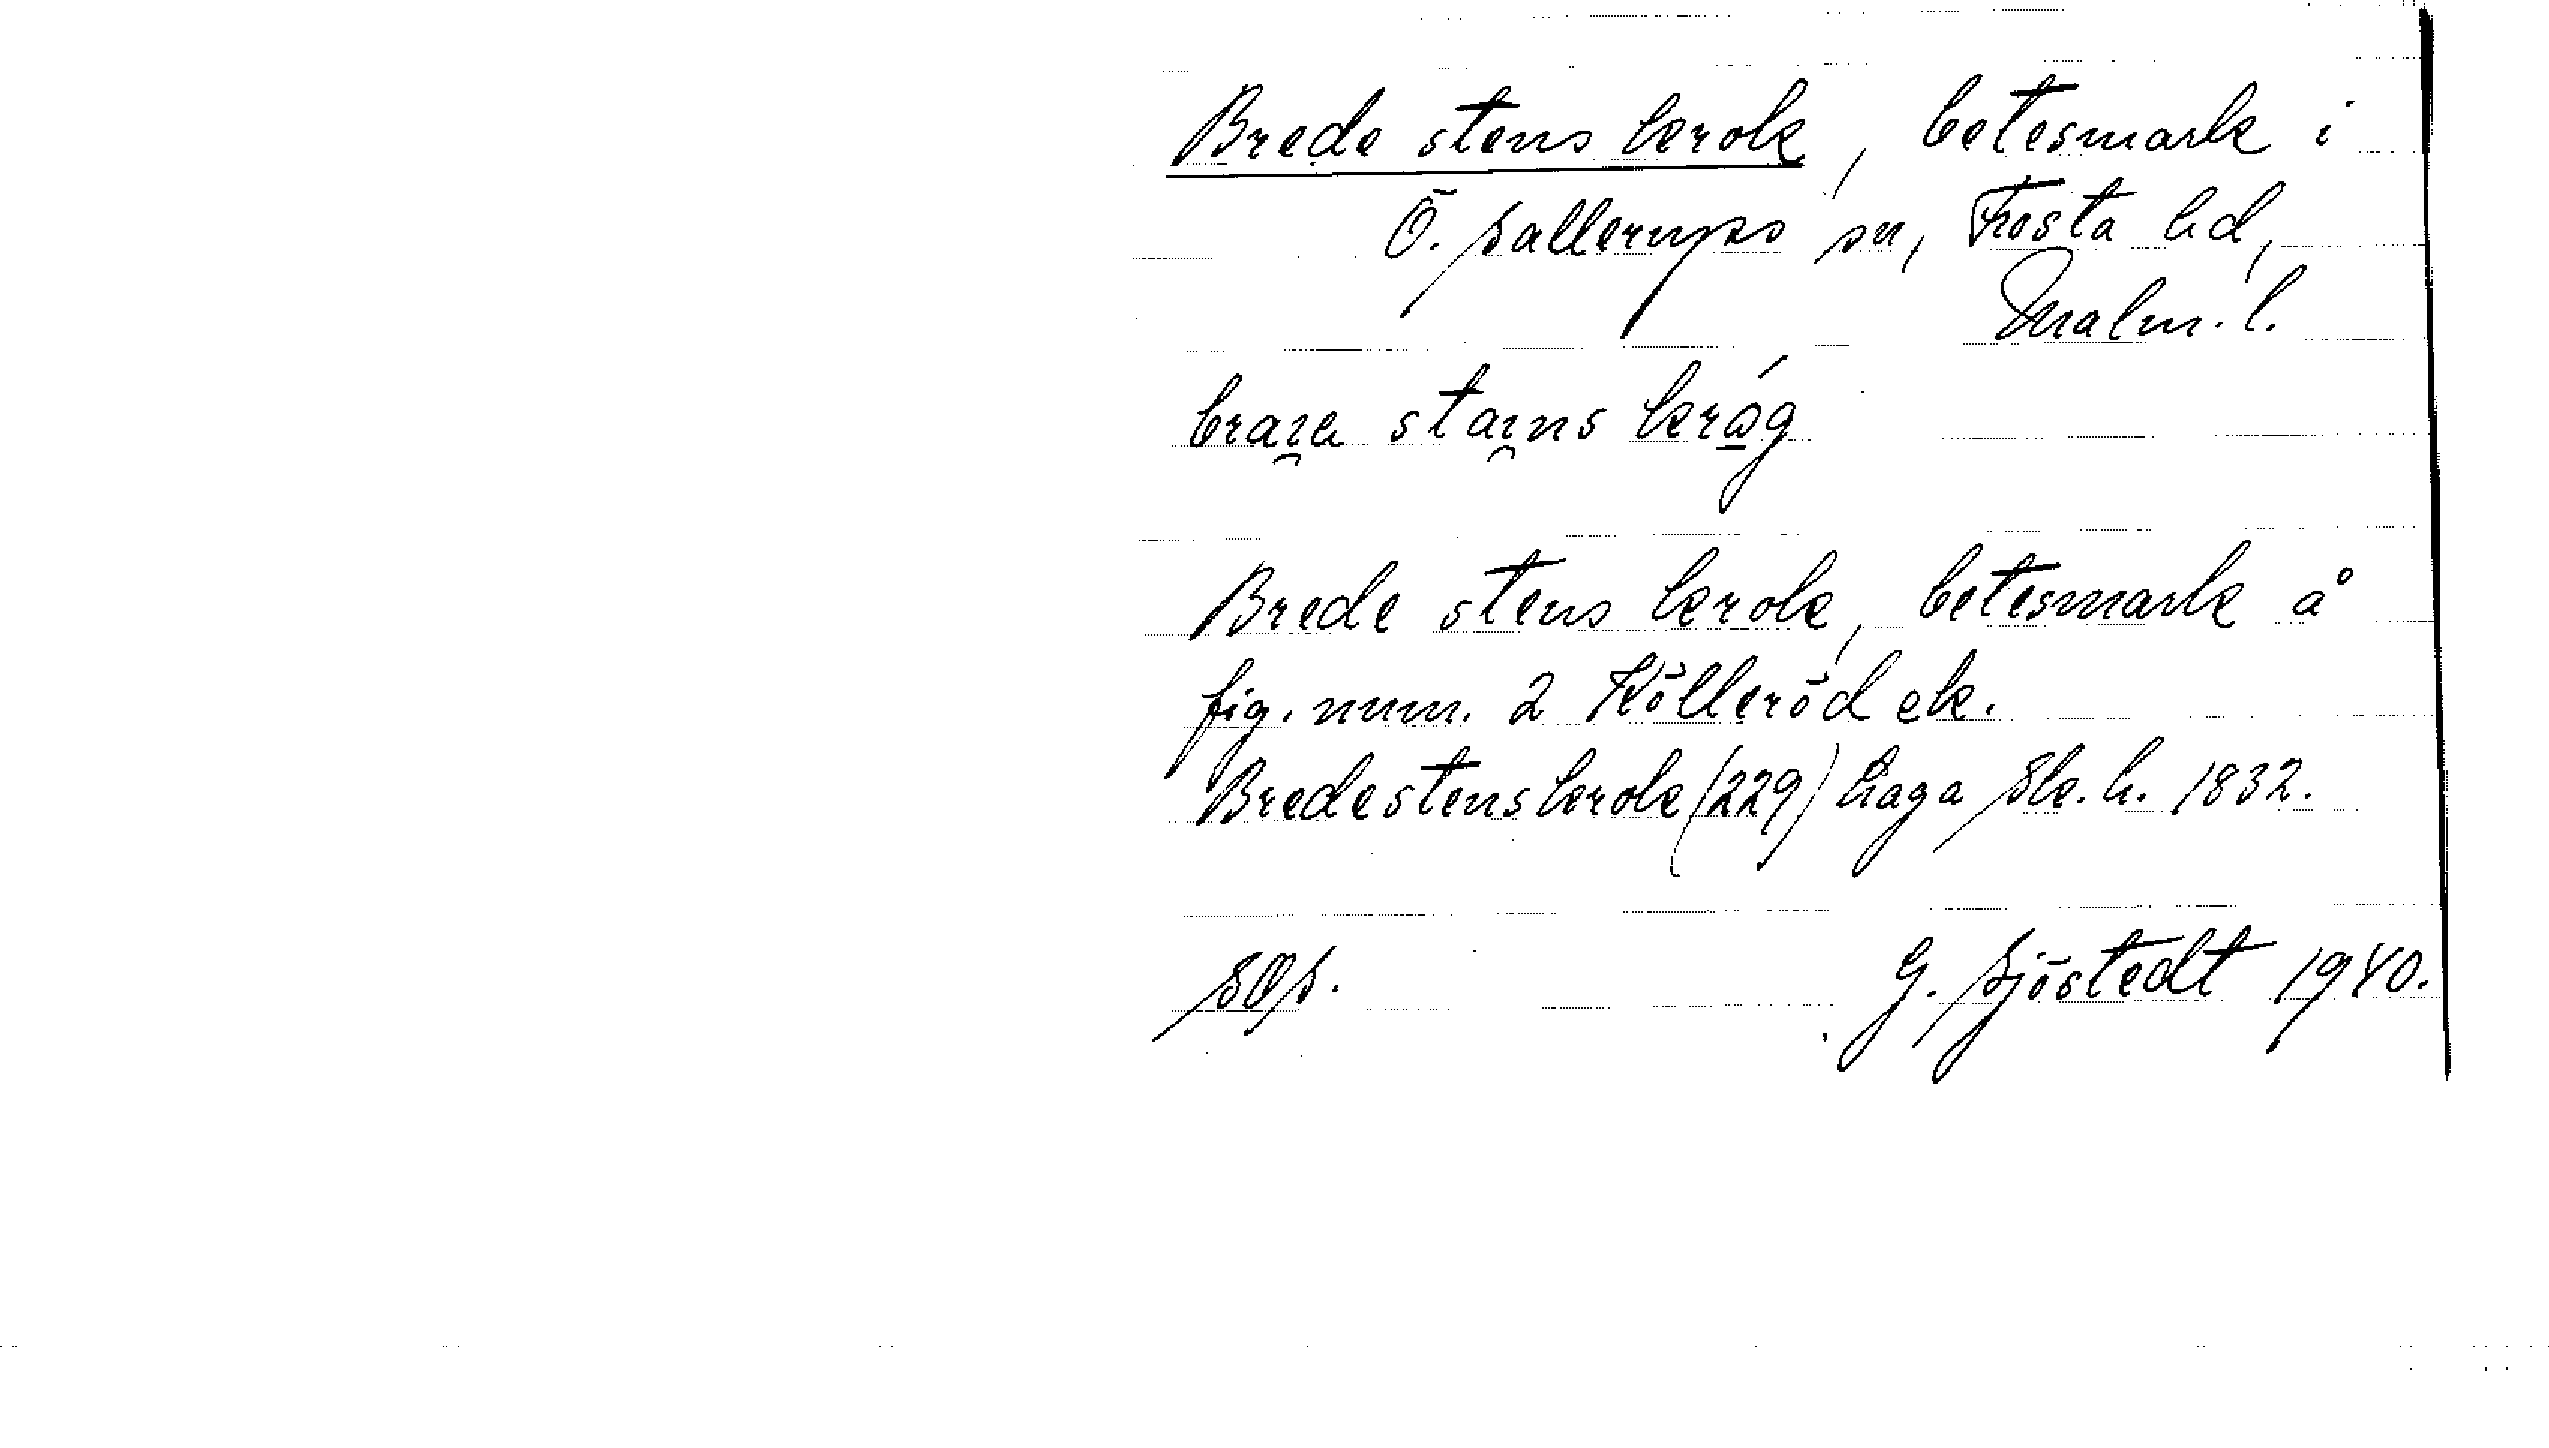 Brede stens krok, betesmark i
Ö. Sallerups sn, Frosta hd,
Malm. l.
braɪa staɪns kråg
Brede stens krok, betesmark å
fig. num. 2 Kölleröd ek.
Bredestenskrok (229) Laga Sk. h. 1832.
SOS.
G. Sjöstedt 1940.